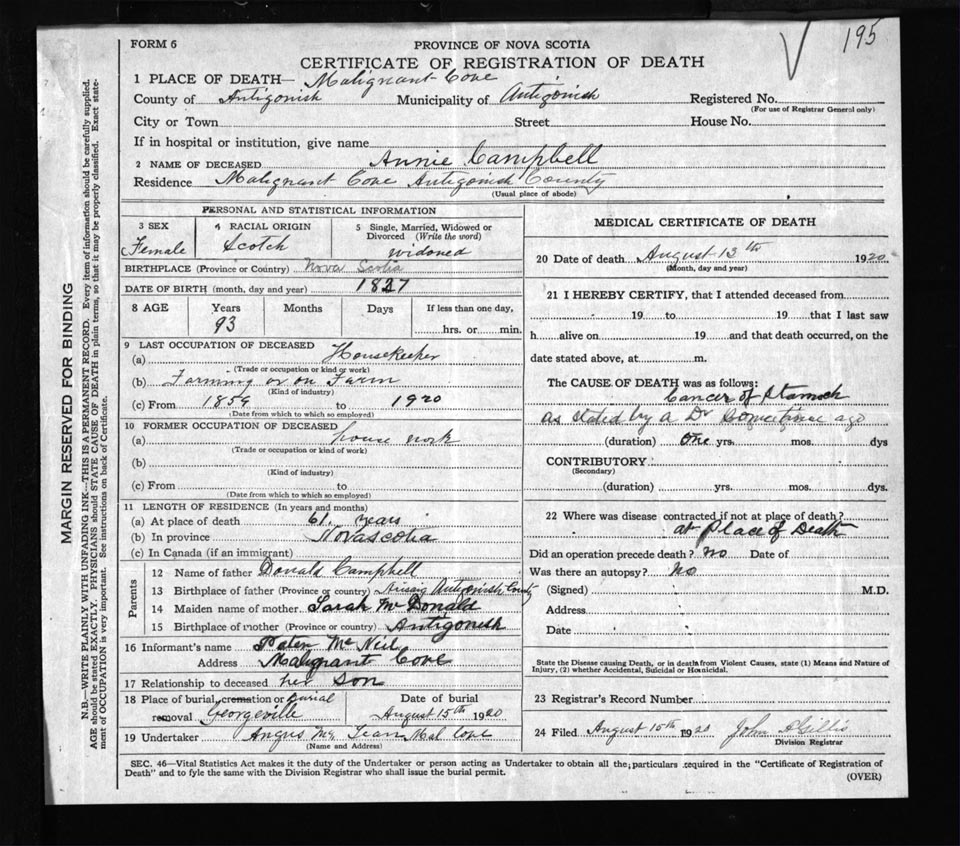 195
FORM 6
PROVINCE OF NOVA SCOTIA
CERTIFICATE OF REGISTRATION OF DEATH
1 PLACE OF DEATH— Malignant Cove
County of Antigonish Municipality of Antigonish Registered No.
(For use of Registrar General only)
City or Town Street House No.
If in hospital or institution, give name
2 NAME OF DECEASED Annie Campbell
Residence Malignant Cove Antigonish County
(Usual place of abode)
MARGIN RESERVED FOR BINDING
N.B.—WRITE PLAINLY WITH UNFADING INK—THIS IS A PERMANENT RECORD. Every item of information should be carefully supplied.
AGE should be stated EXACTLY. PHYSICIANS should STATE CAUSE OF DEATH in plain terms, so that it may be properly classified. Exact state-
ment of OCCUPATION is very important. See instructions on back of Certificate.
PERSONAL AND STATISTICAL INFORMATION
3 SEX
Female
4 RACIAL ORIGIN
Scotch
5 Single, Married, Widowed or
Divorced (Write the word)
widoned
BIRTHPLACE (Province or Country) Nova Scotia
DATE OF BIRTH (month, day and year) 1827
8 AGE Years Months Days If less than one day,
93 hrs. or min.
9 LAST OCCUPATION OF DECEASED
(a) Housekeeper
(Trade or occupation or kind of work)
(b) Farming or on Farm
(Kind of industry)
(c) From 1859 to 1920
(Date from which to which so employed)
10 FORMER OCCUPATION OF DECEASED
(a) house work
(Trade or occupation or kind of work)
(b)
(Kind of industry)
(c) From to
(Date from which to which so employed)
11 LENGTH OF RESIDENCE (In years and months)
(a) At place of death 61. years
(b) In province Novascotia
(c) In Canada (if an immigrant)
Parents
12 Name of father Donald Campbell
13 Birthplace of father (Province or country) Arisaig Antigonish County
14 Maiden name of mother Sarah McDonald
15 Birthplace of mother (Province or country) Antigonish
16 Informant's name Peter McNeil
Address Malignant Cove
17 Relationship to deceased her son
18 Place of burial, cremation or burial
removal Georgeville
Date of burial
August 15th 1920
19 Undertaker Angus Mc Lean Mal Cove
(Name and Address)
MEDICAL CERTIFICATE OF DEATH
20 Date of death August 13th 1920
(Month, day and year)
21 I HEREBY CERTIFY, that I attended deceased from
19 to 19 that I last saw
h alive on 19 and that death occurred, on the
date stated above, at m.
The CAUSE OF DEATH was as follows:
Cancer of Stamoch
as stated by a Dr sometime ago
(duration) one yrs. mos. dys
CONTRIBUTORY
(Secondary)
(duration) yrs. mos. dys.
22 Where was disease contracted if not at place of death?
at Place of Death
Did an operation precede death? no Date of
Was there an autopsy? No
(Signed) M.D.
Address
Date
State the Disease causing Death, or in death from Violent Causes, state (1) Means and Nature of
Injury, (2) whether Accidental, Suicidal or Homicidal.
23 Registrar's Record Number
24 Filed August 15th 1920 John A Gillis
Division Registrar
SEC. 46—Vital Statistics Act makes it the duty of the Undertaker or person acting as Undertaker to obtain all the particulars required in the "Certificate of Registration of
Death" and to fyle the same with the Division Registrar who shall issue the burial permit.
(OVER)